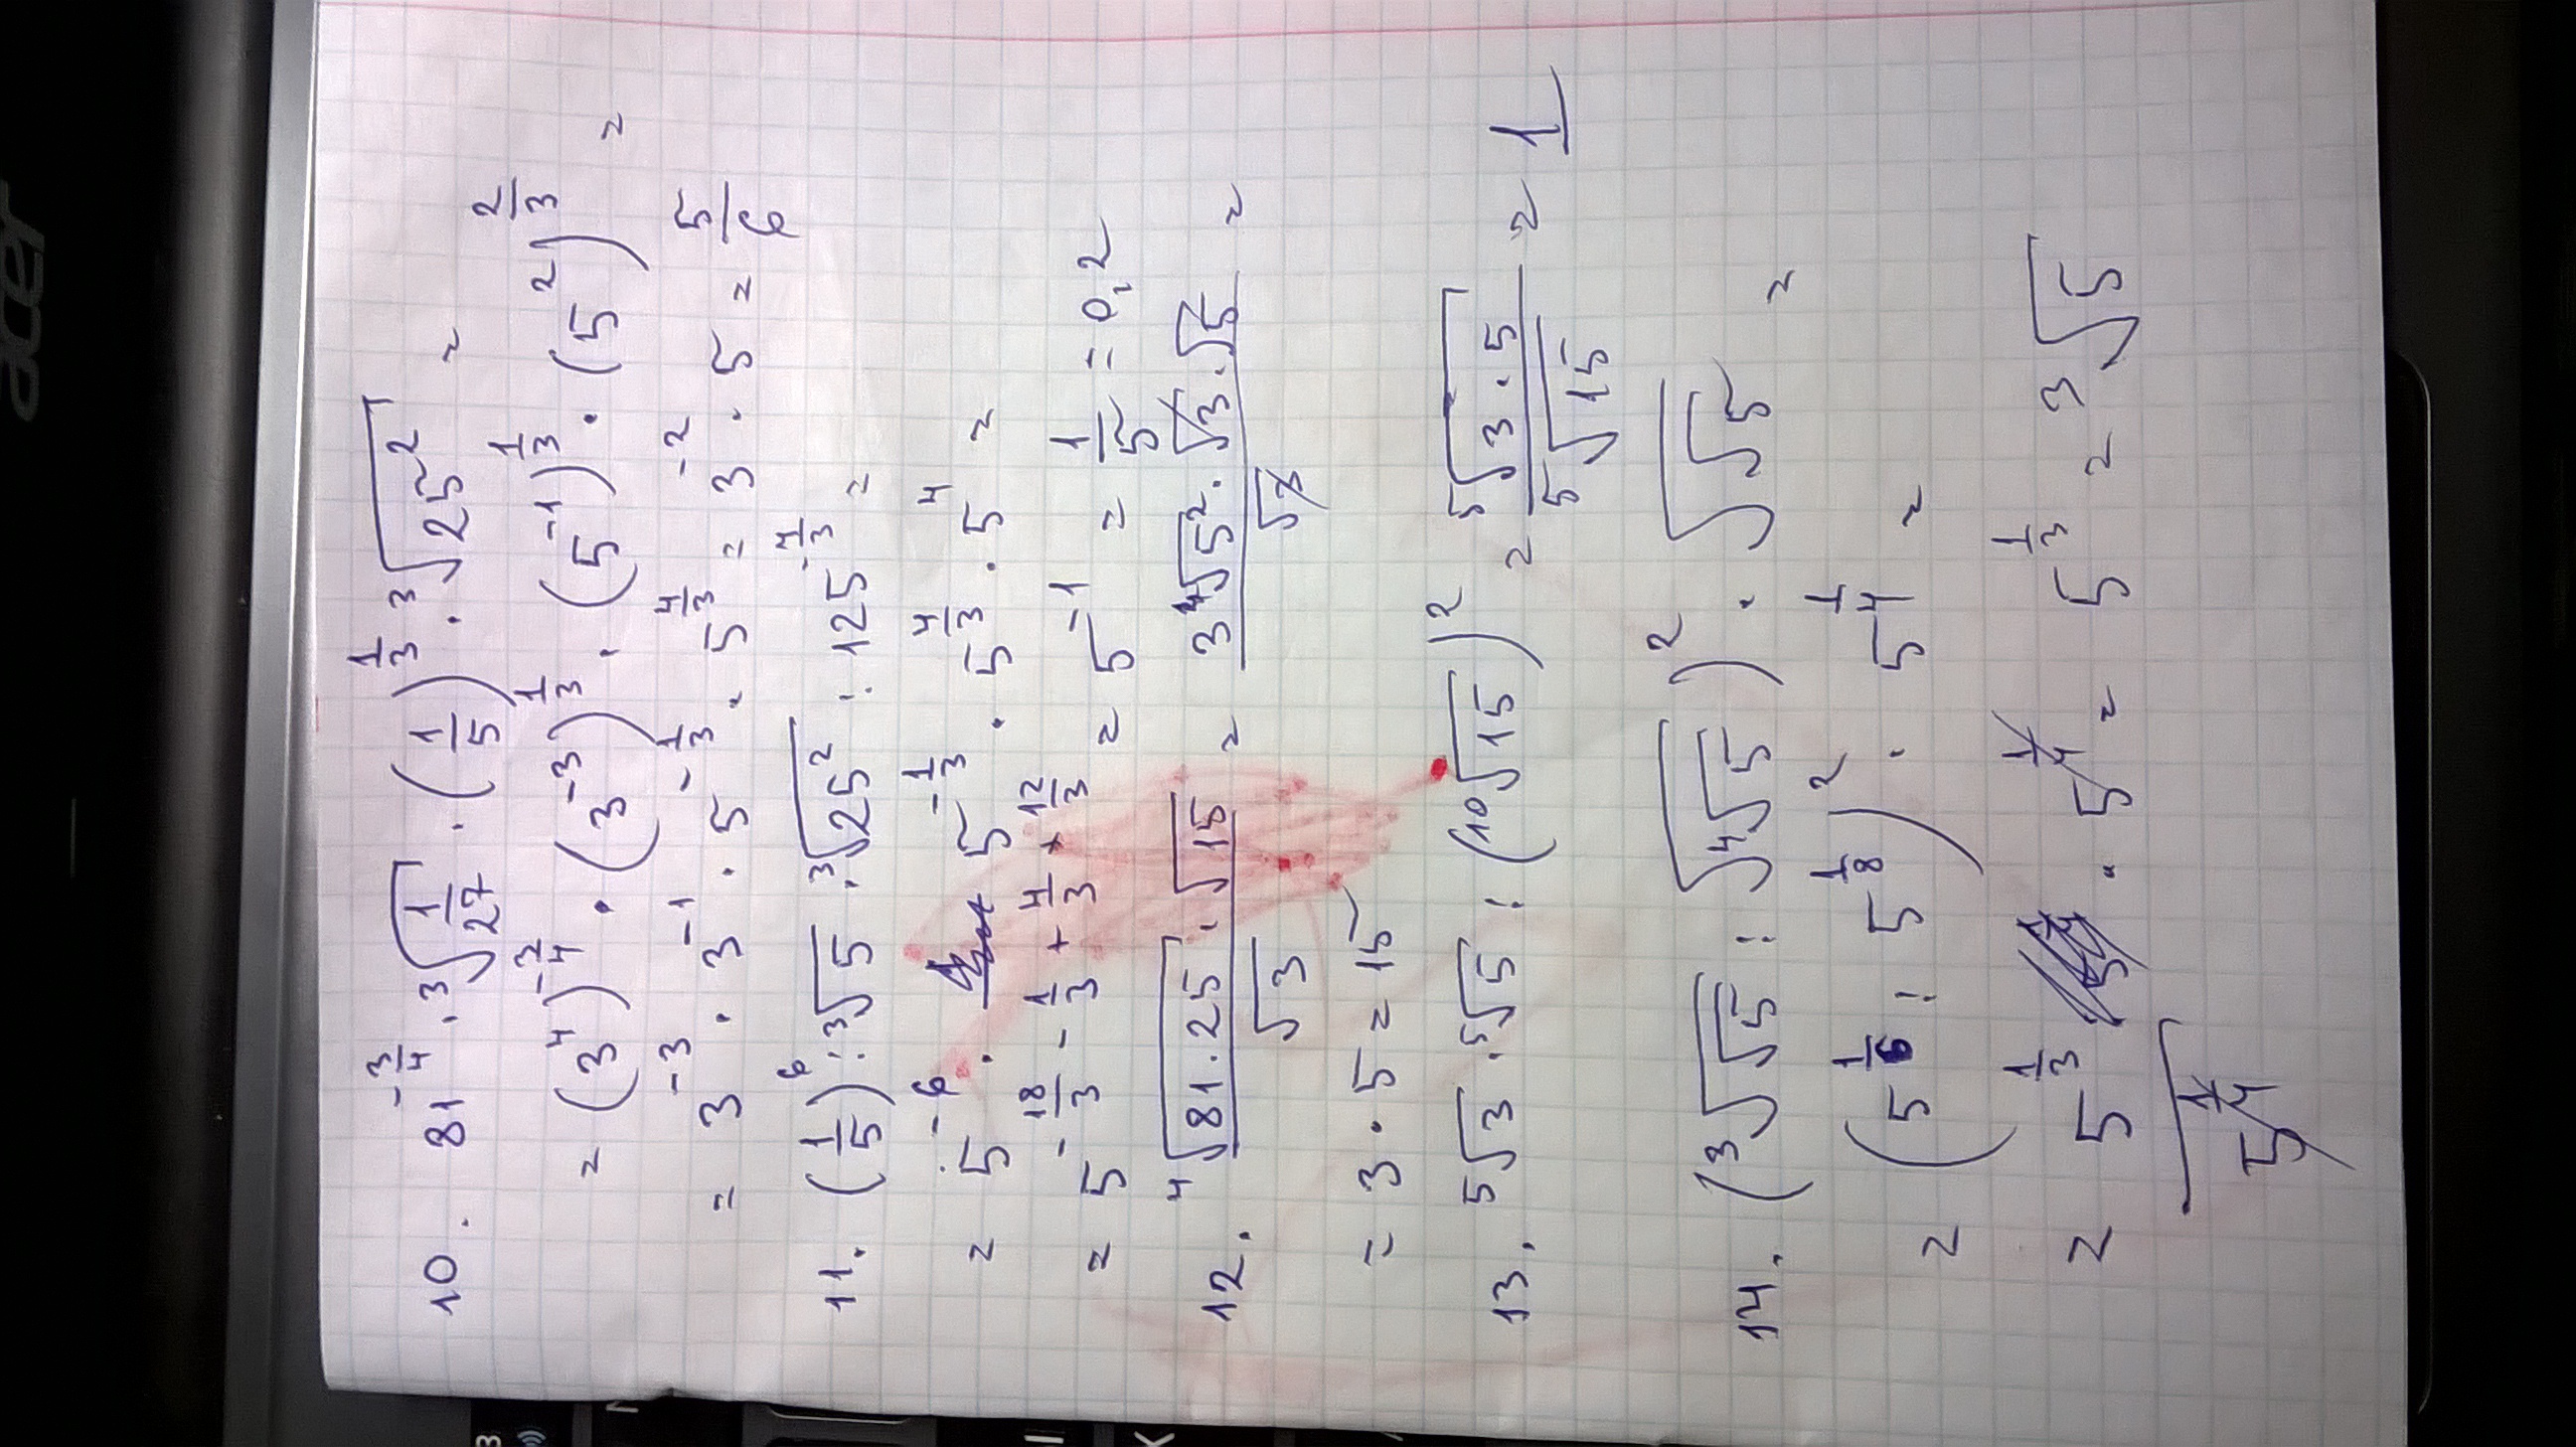 acer
10. 81^{-3/4} · ³√(1/27) · (1/5)^{1/3} · ³√(25²) =
= (3⁴)^{-3/4} · (3^{-3})^{1/3} · (5^{-1})^{1/3} · (5²)^{2/3} =
= 3^{-3} · 3^{-1} · 5^{-1/3} · 5^{4/3} = 3^{-2} · 5 = 5/6
11. (1/5)^6 : ³√5 · ³√(25²) : 125^{-4/3} =
= 5^{-6} · 5^{-1/3} · 5^{4/3} · 5^4 =
= 5^{-18/3 - 1/3 + 4/3 + 12/3} = 5^{-1} = 1/5 = 0,2
12. (⁴√(81·25) · √15)/√3 = (3 ⁴√(5²) · √3 · √5)/√3 =
= 3 · 5 = 15
13. ⁵√3 · ⁵√5 : (¹⁰√15)² = ⁵√(3·5)/⁵√15 = 1
14. (³√(√5) : √(⁴√5))² · √(√5) =
= (5^{1/6} : 5^{1/8})² · 5^{1/4} =
= 5^{1/3} · 5^{1/4} = 5^{1/3} = ³√5
5^{1/4}
K